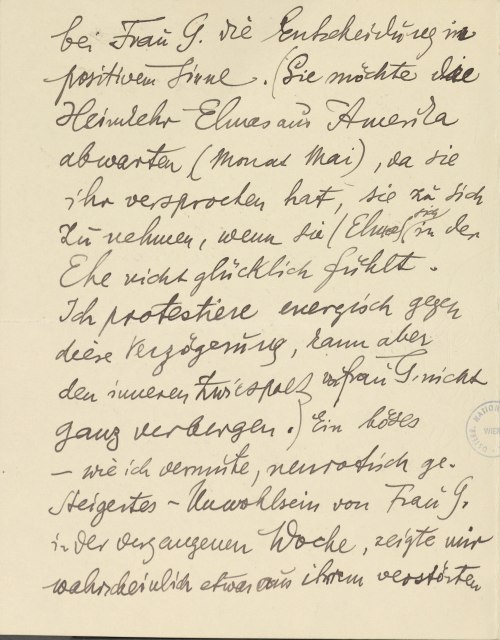 bei Frau G. die Entscheidung in
positivem Sinne. (Sie möchte die
Heimkehr Elmas aus Amerika
abwarten (Monat Mai), da sie
ihr versprochen hat, sie zu sich
zu nehmen, wenn sie (Elma) sich in der
Ehe nicht glücklich fühlt.
Ich protestiere energisch gegen
diese Verzögerung, kann aber
den inneren Zwiespalt vor Frau G. nicht
ganz verbergen.) Ein böses
– wie ich vermute, neurotisch ge-
steigertes – Unwohlsein von Frau G.
in der vergangenen Woche, zeigte mir
wahrscheinlich etwas von ihrem verstörten